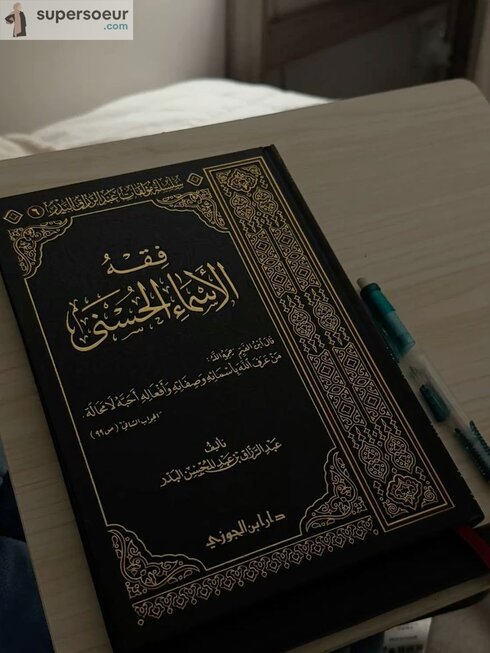 supersoeur
.com
سلسلة مؤلفات عبد الرزاق البدر ٦
فقه
الأسماء الحسنى
قال ابن القيم رحمه الله:
من عرف الله بأسمائه وصفاته وأفعاله أحبه لا محالة.
"الجواب الكافي" (ص ٩٩)
تأليف
عبد الرزاق بن عبد المحسن البدر
دار ابن الجوزي